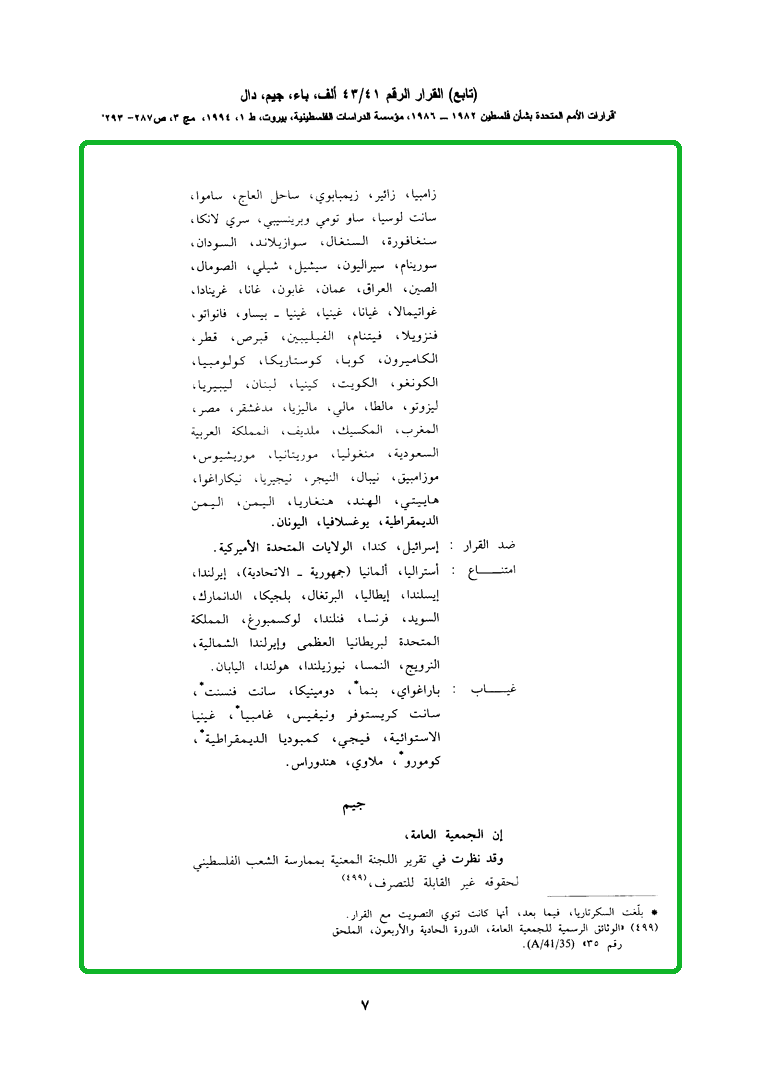 (تابع) القرار الرقم ٤٣/٤١ ألف، باء، جيم، دال
"قرارات الأمم المتحدة بشأن فلسطين ١٩٨٢ ــ ١٩٨٦، مؤسسة الدراسات الفلسطينية، بيروت، ط ١، ١٩٩٤، مج ٣، ص٢٨٧- ٢٩٣"
زامبيا، زائير، زيمبابوي، ساحل العاج، ساموا،
سانت لوسيا، ساو تومي وبرينسيبي، سري لانكا،
سنغافورة، السنغال، سوازيلاند، السودان،
سورينام، سيراليون، سيشيل، شيلي، الصومال،
الصين، العراق، عمان، غابون، غانا، غرينادا،
غواتيمالا، غيانا، غينيا، غينيا ـ بيساو، فانواتو،
فنزويلا، فيتنام، الفيليبين، قبرص، قطر،
الكاميرون، كوبا، كوستاريكا، كولومبيا،
الكونغو، الكويت، كينيا، لبنان، ليبيريا،
ليزوتو، مالطا، مالي، ماليزيا، مدغشقر، مصر،
المغرب، المكسيك، ملديف، المملكة العربية
السعودية، منغوليا، موريتانيا، موريشيوس،
موزامبيق، نيبال، النيجر، نيجيريا، نيكاراغوا،
هاييتي، الهند، هنغاريا، اليمن، اليمن
الديمقراطية، يوغسلافيا، اليونان.
ضد القرار : إسرائيل، كندا، الولايات المتحدة الأميركية.
امتنـــاع : أستراليا، ألمانيا (جمهورية ـ الاتحادية)، إيرلندا،
إيسلندا، إيطاليا، البرتغال، بلجيكا، الدانمارك،
السويد، فرنسا، فنلندا، لوكسمبورغ، المملكة
المتحدة لبريطانيا العظمى وإيرلندا الشمالية،
النرويج، النمسا، نيوزيلندا، هولندا، اليابان.
غيـــاب : باراغواي، بنما*، دومينيكا، سانت فنسنت*،
سانت كريستوفر ونيفيس، غامبيا*، غينيا
الاستوائية، فيجي، كمبوديا الديمقراطية*،
كومورو*، ملاوي، هندوراس.
جيم
إن الجمعية العامة،
وقد نظرت في تقرير اللجنة المعنية بممارسة الشعب الفلسطيني
لحقوقه غير القابلة للتصرف،(٤٩٩)
* بلّغت السكرتاريا، فيما بعد، أنها كانت تنوي التصويت مع القرار.
(٤٩٩) «الوثائق الرسمية للجمعية العامة، الدورة الحادية والأربعون، الملحق
رقم ٣٥» (A/41/35).
٧